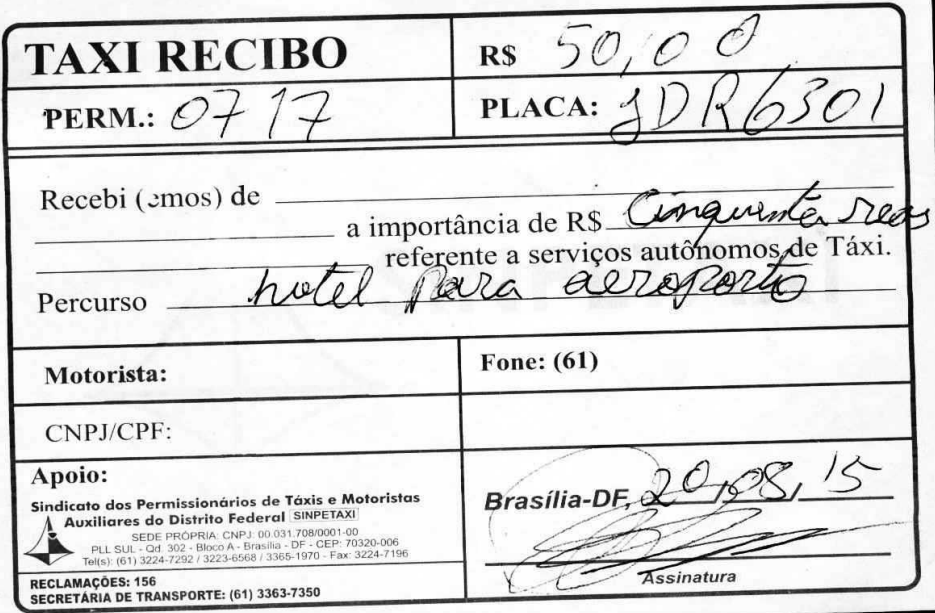 TAXI RECIBO
R$ 50,00
PERM.: 0717
PLACA: JDR6301
Recebi (emos) de
a importância de R$ Cinquenta reas
referente a serviços autônomos de Táxi.
Percurso hotel para aeroporto
Motorista:
Fone: (61)
CNPJ/CPF:
Apoio:
Sindicato dos Permissionários de Táxis e Motoristas
Auxiliares do Distrito Federal SINPETAXI
SEDE PRÓPRIA: CNPJ: 00.031.708/0001-00
PLL SUL - Qd. 302 - Bloco A - Brasília - DF - CEP: 70320-006
Tel(s): (61) 3224-7292 / 3223-6568 / 3365-1970 - Fax: 3224-7196
RECLAMAÇÕES: 156
SECRETÁRIA DE TRANSPORTE: (61) 3363-7350
Brasília-DF, 20,08,15
Assinatura